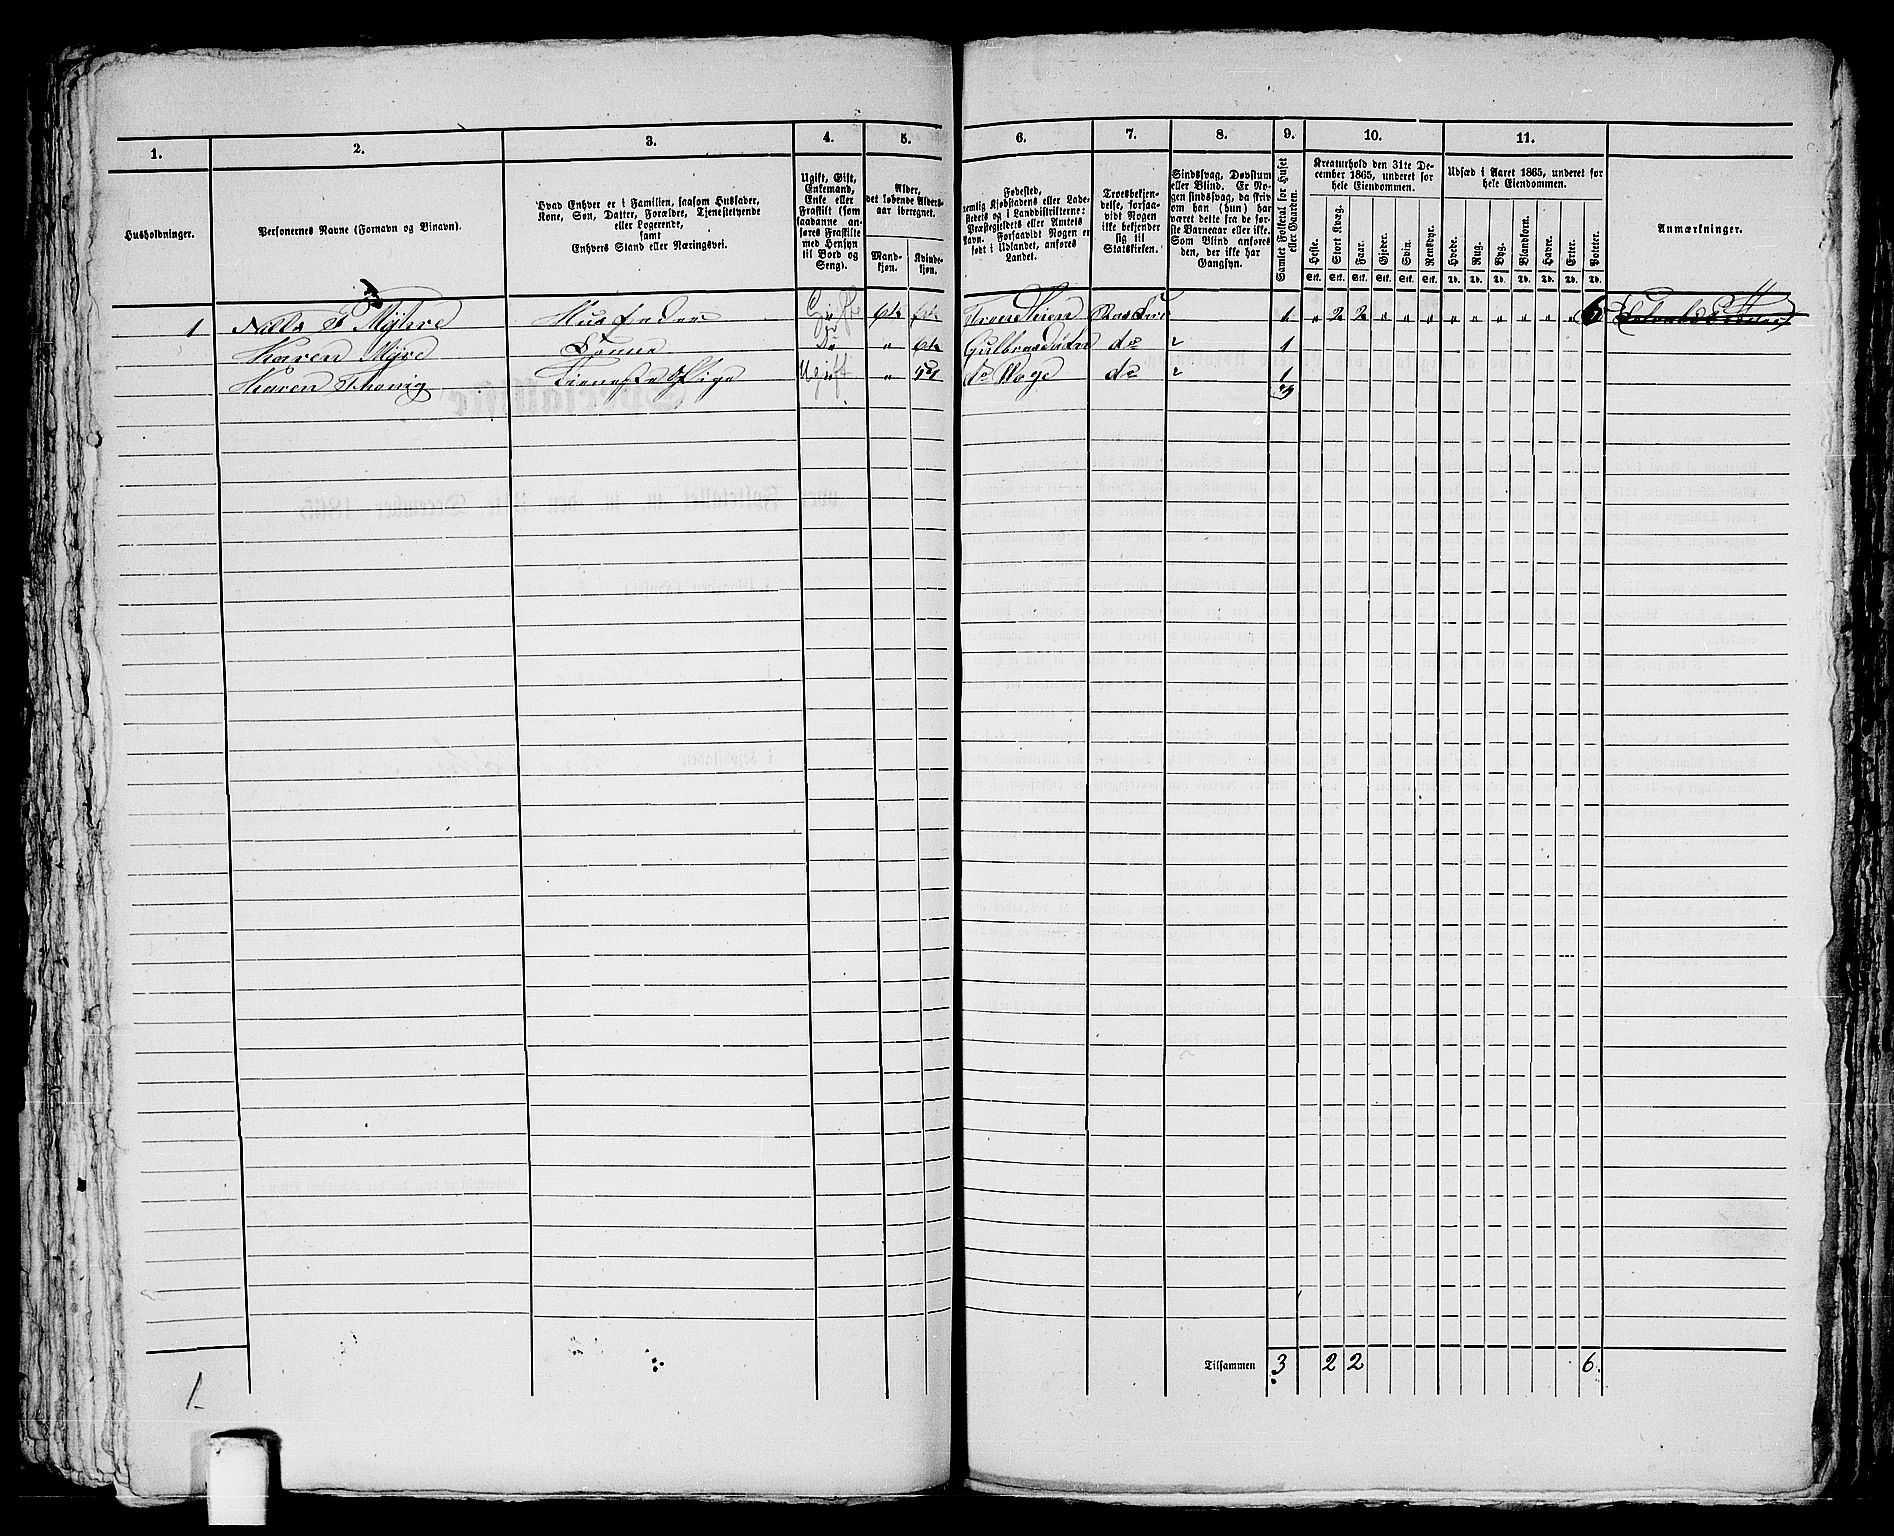 1. 2. 3. 4. 5. 6. 7. 8. 9. 10. 11.
Husholdninger.
Personernes Navne (Fornavn og Binavn).
Hvad Enhver er i Familien, saasom Husfader,
Kone, Søn, Datter, Forældre, Tjenestetyende
eller Logerende,
samt
Enhvers Stand eller Næringsvei.
Ugift, Gift,
Enkemand,
Enke eller
Fraskilt (som
saadanne an-
føres Fraskilte
med Hensyn
til Bord og
Seng).
Alder,
det løbende Alders-
aar iberegnet.
Mand-
kjøn.
Kvinde-
kjøn.
Fødested,
nemlig Kjøbstadens eller Lade-
stedets og i Landdistrikterne:
Præstegjeldets eller Amtets
Navn. Forsaavidt Nogen er
født i Udlandet, anføres
Landet.
Troesbekjen-
delse, forsaa-
vidt Nogen
ikke bekjender
sig til
Statskirken.
Sindssvag, Døvstum
eller Blind. Er No-
gen sindssvag, da skriv
om han (hun) har
været dette fra de før-
ste Barneaar eller ikke.
Som Blind anføres
den, der ikke har
Gangsyn.
Samlet Folketal for Huset
eller Gaarden.
Kreaturhold den 31te De-
cember 1865, underet for
hele Eiendommen.
Heste. Stort Kvæg. Faar. Gjeder. Svin. Rensdyr.
Stk. Stk. Stk. Stk. Stk. Stk.
Udsæd i Aaret 1865, underet for
hele Eiendommen.
Hvede. Rug. Byg. Blandkorn. Havre. Erter. Poteter.
Td. Td. Td. Td. Td. Td. Td.
Anmærkninger.
1 Nills P Myhre Husfader Gifte 1 " 2 2 " " " " " " " " " 6
Karen Myre Konne " Gulbrasdalen do 1
Karen Thonig Tieneste Pige Ugift " do do 1
3
Tilsammen 3 2 2 6
1